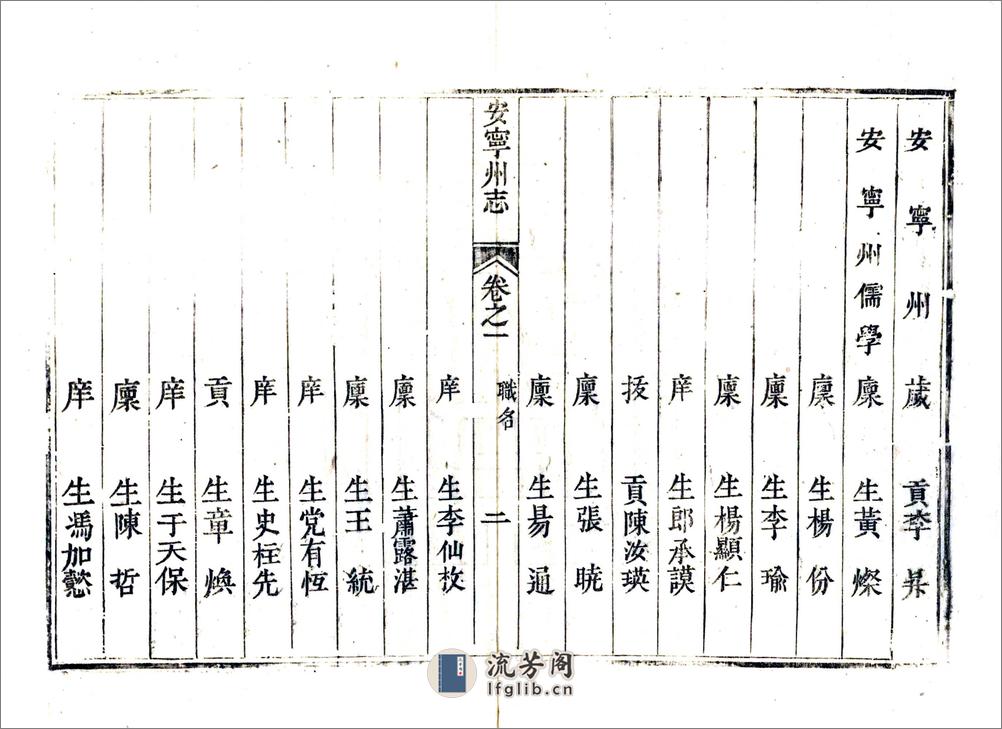 安寧州 歲貢李昇
安寧州儒學 廩生黃燦
廩生楊份
廩生李瑜
廩生楊顯仁
庠生郎承謨
拔貢陳汝瑛
廩生張曉
廩生昜通
安寧州志 卷之一 職名 二
庠生李仙枚
廩生蕭露湛
廩生王統
庠生党有恆
庠生史柱先
貢生章煥
庠生于天保
廩生陳哲
庠生馮加懿
流芳阁
lfglib.cn